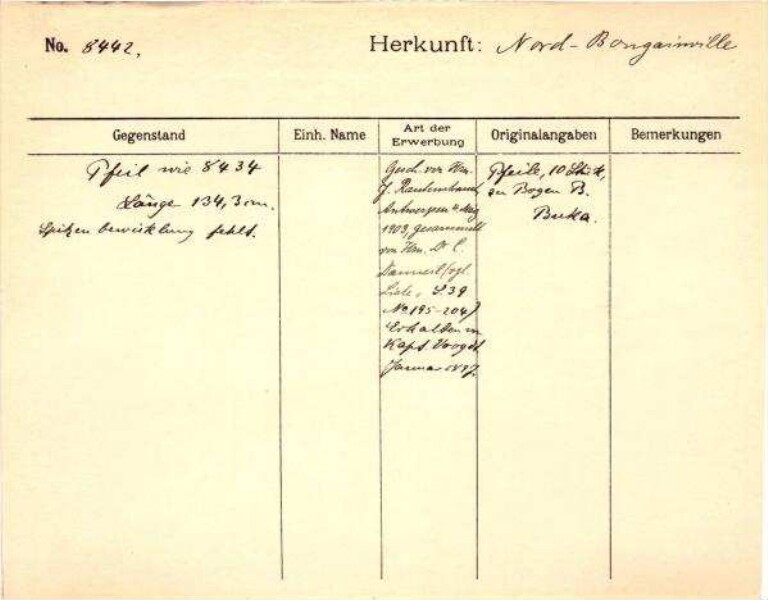 No. 8442.
Herkunft: Nord-Bougainville
Gegenstand
Einh. Name
Art der Erwerbung
Originalangaben
Bemerkungen
Pfeil wie 8434
Länge 134,3 cm.
Spitzen bewicklung fehlt.
Gesch. von Hrn.
J.
Antwerpen 4. Mai
1903, gesammelt
von Hrn. Dr. C.
(vgl.
Liste, S. 39
No 195-204)
Erhalten von
Kapt. Voogdt
Januar 1897.
Pfeile, 10 Stück,
zu Bogen B.
Buka.